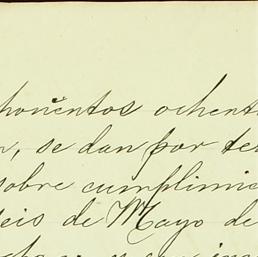 hocientos ochent
n, se dan por te
sobre cumplimie
seis de Mayo de